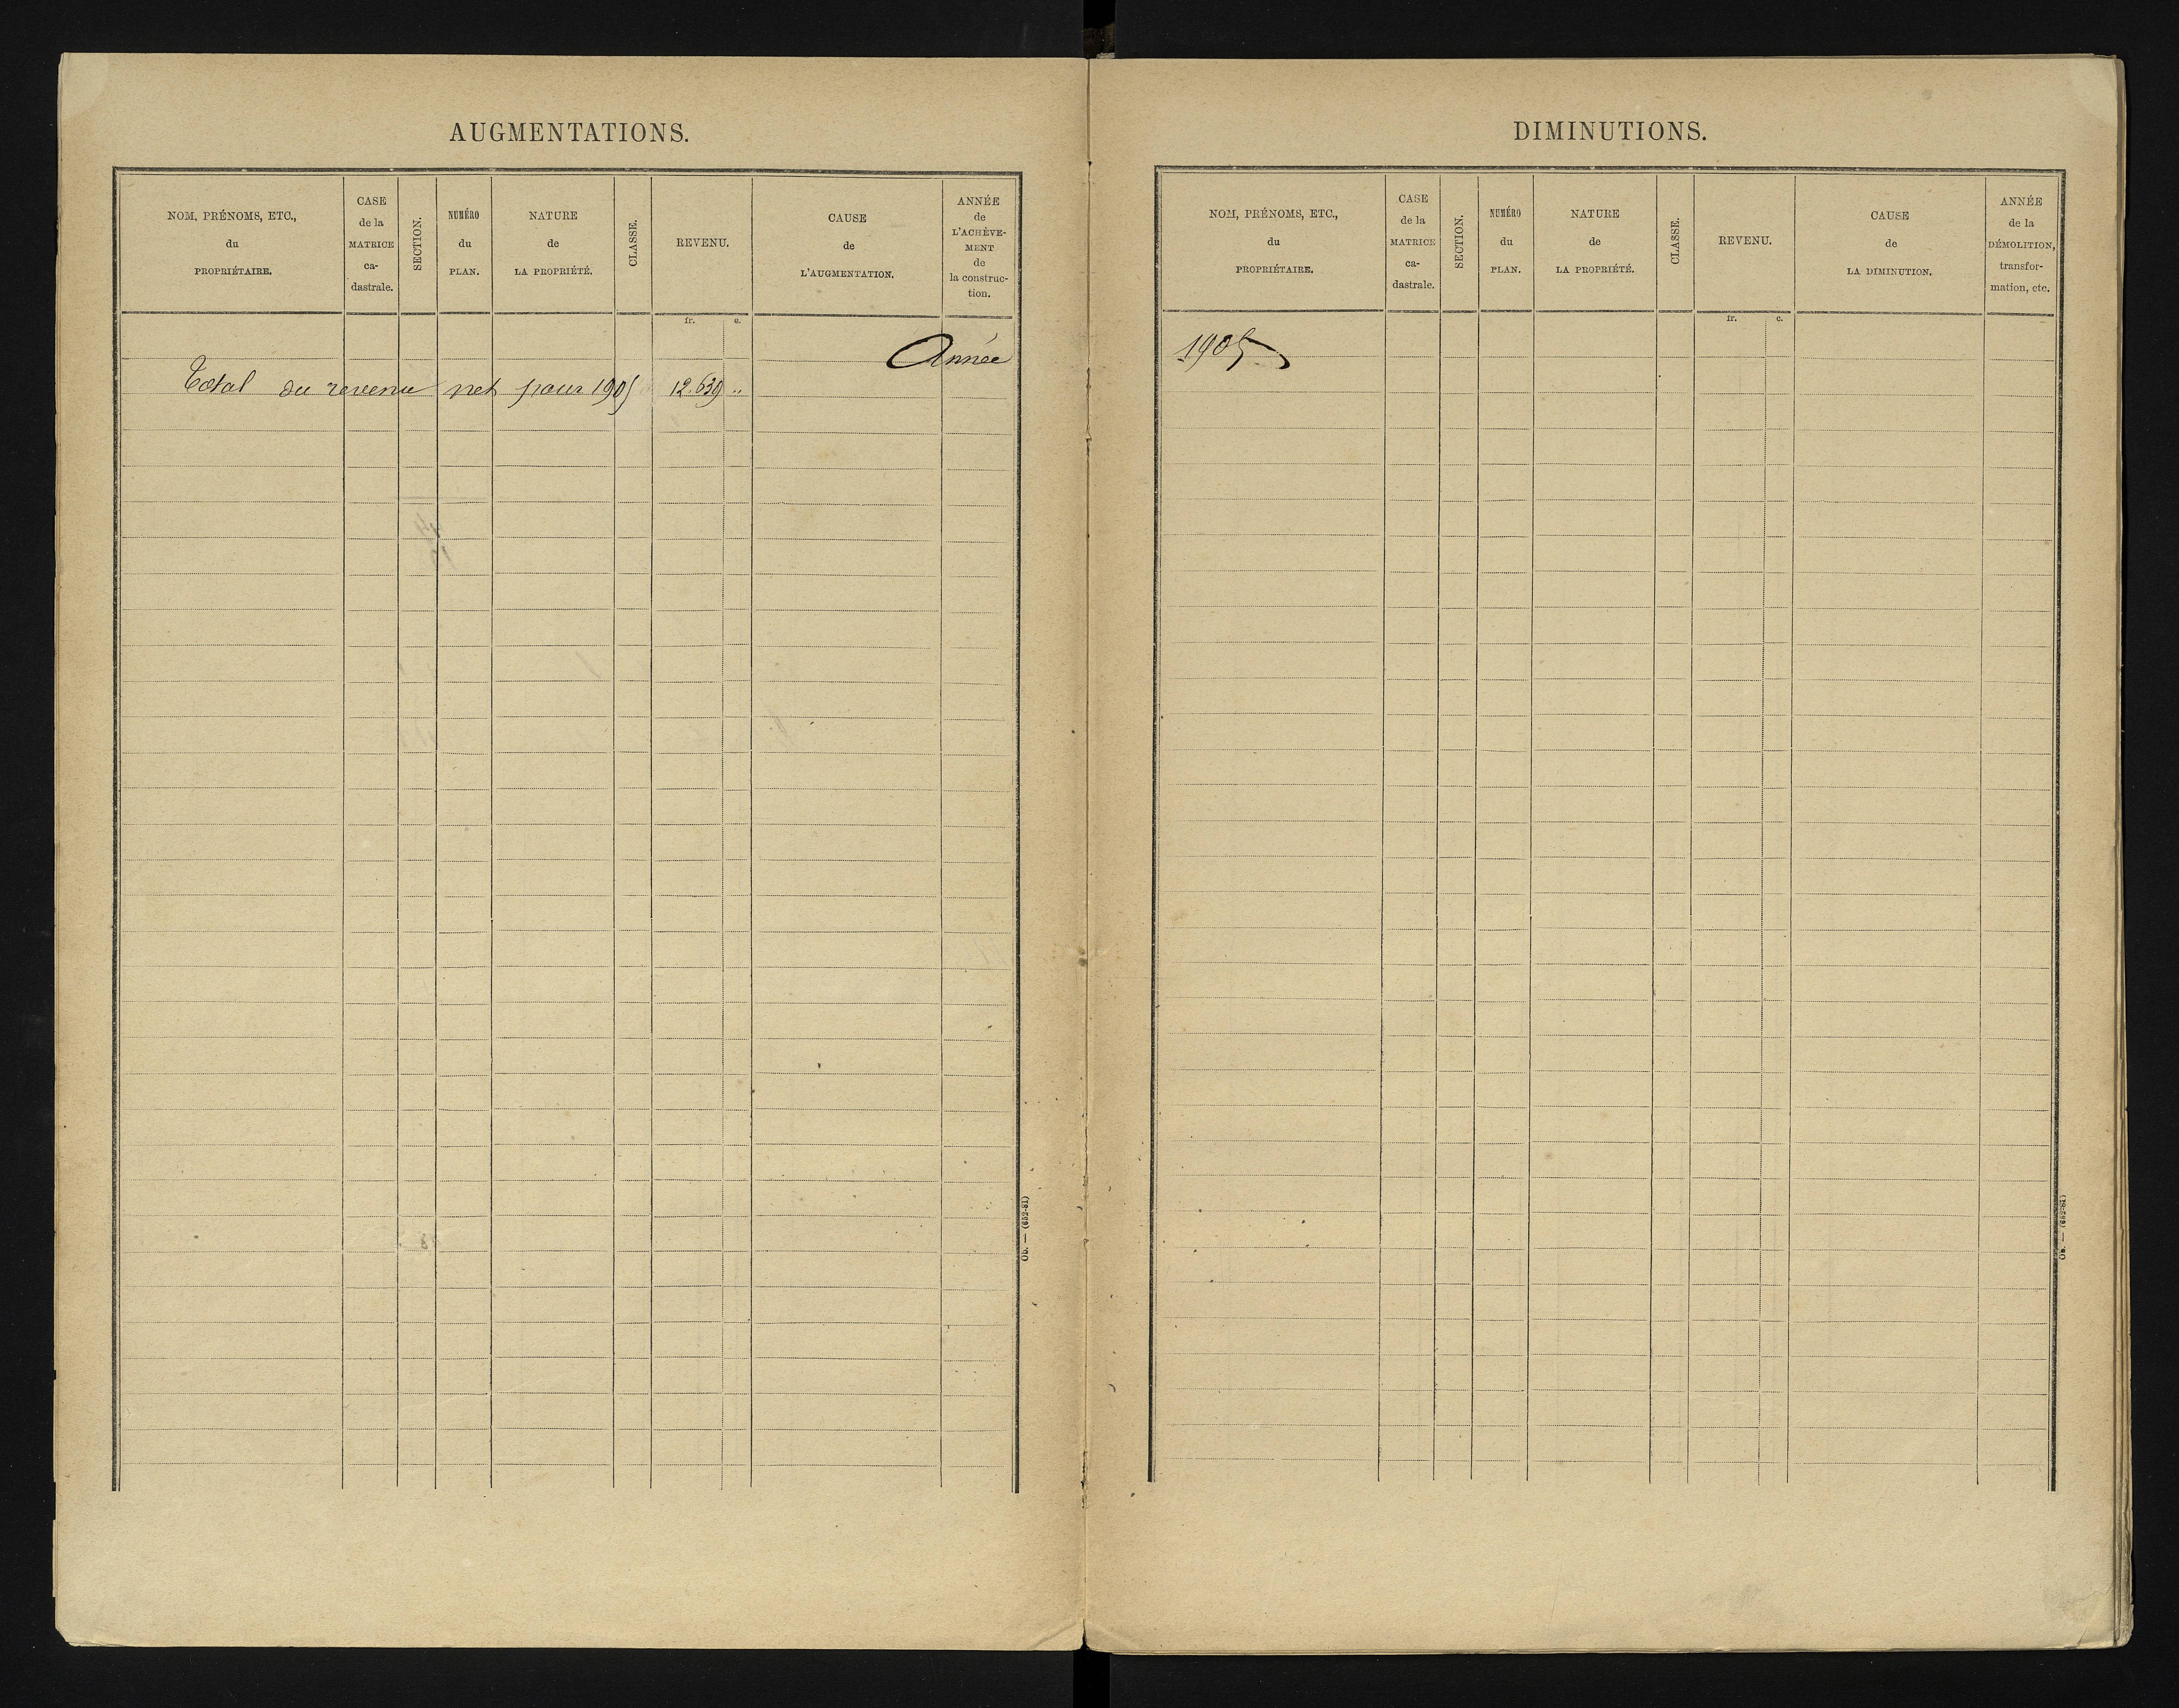 AUGMENTATIONS.
NOM, PRÉNOMS, ETC.,
du
PROPRIÉTAIRE.
CASE
de la
MATRICE
ca-
dastrale.
SECTION.
NUMÉRO
du
PLAN.
NATURE
de
LA PROPRIÉTÉ.
CLASSE.
REVENU.
CAUSE
de
L'AUGMENTATION.
ANNÉE
de
L'ACHÈVE-
MENT
de
la construc-
tion.
fr. c.
Année
Total du revenu net pour 1905 12.639 "
Ob. — (652-81)
DIMINUTIONS.
NOM, PRÉNOMS, ETC.,
du
PROPRIÉTAIRE.
CASE
de la
MATRICE
ca-
dastrale.
SECTION.
NUMÉRO
du
PLAN.
NATURE
de
LA PROPRIÉTÉ.
CLASSE.
REVENU.
CAUSE
de
LA DIMINUTION.
ANNÉE
de la
DÉMOLITION,
transfor-
mation, etc.
fr. c.
1905
Ob. — (652-81)